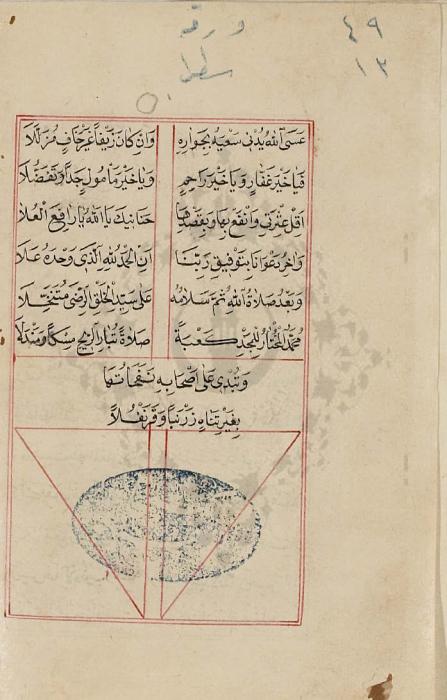 ورقه ٤٩
سطر ١٣
عَسَى اللهُ يُدْنِى سَعْيَهُ بِجَوَارِهِ وَاِنْ كَانَ زَيْفًا غَيْرَ خَافٍ مُزَلَّلَا
فَيَا خَيْرَ غَفَّارٍ وَيَا خَيْرَ رَاحِمٍ وَيَا خَيْرَ مَأْمُولٍ جَدًا وَتَفَضُّلَا
اَقِلْ عَثْرَتِى وَانْفَعْ بِهَا وَبِقَصْدِهَا حَنَانَيْكَ يَا اَللهُ يَا رَافِعَ الْعُلَا
وَاٰخِرُ دَعْوَانَا بِتَوْفِيقِ رَبِّنَا اَنِ الْحَمْدُ لِلّٰهِ الَّذِى وَحْدَهُ عَلَا
وَبَعْدُ صَلَاةُ اللهِ ثُمَّ سَلَامُهُ عَلَى سَيِّدِ الْخَلْقِ الرِّضَى مُتَنَخَّلَا
مُحَمَّدٍ الْمُخْتَارِ لِلْمَجْدِ كَعْبَةً صَلَاةً تُبَارِى الرِّيحَ مِسْكًا وَمَنْدَلَا
وَتُبْدِى عَلَى اَصْحَابِهِ نَفَحَاتُهَا
بِغَيْرِ تَنَاهٍ زَرْنَبًا وَقَرَنْفُلَا